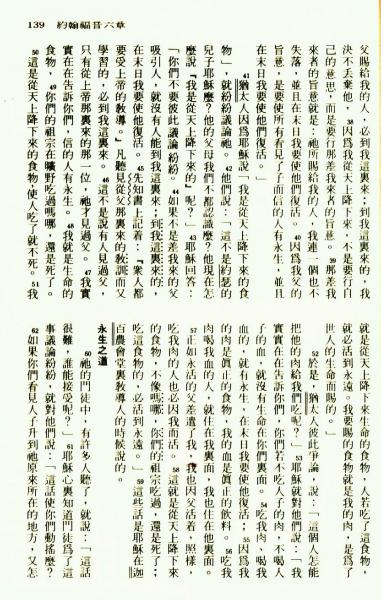 139 約翰福音六章
父賜給我的人，必到我這裏來；到我這裏來的，我
決不丟棄他，38因爲我從天上降下來，不是要行自
己的意思，而是要行那差我來者的旨意。39那差我
來者的旨意就是：祂所賜給我的人，我連一個也不
失落，並且在末日我要使他們復活。40因爲我父的
旨意，是要使所有看見了子而信的人有永生，並且
在末日我要使他們復活。」
41猶太人因爲耶穌說「我是從天上降下來的食
物」，就紛紛議論祂。42他們說：「這不是約瑟的
兒子耶穌麼？他的父母我們不都認識麼？他現在怎
麼說『我是從天上降下來的』呢？」43耶穌回答：
「你們不要彼此議論紛紛。44如果不是差我來的父
吸引人，就沒有人能到我這裏來；到我這裏來的，
在末日我要使他復活。45先知書上記着：『衆人都
要受上帝的教導。』凡聽見從父那裏來的教訓而又
學習的，必到我這裏來。46這不是說有人見過父，
只有從上帝那裏來的那一位，祂才見過父。47我實
實在在告訴你們，信的人有永生。48我就是生命的
食物，49你們的祖宗在曠野吃過嗎哪，還是死了。
50這是從天上降下來的食物，使人吃了就不死。51我
就是從天上降下來生命的食物，人若吃了這食物，
就必活到永遠。我要賜的食物就是我的肉，是爲了
世人的生命而賜的。」
52於是，猶太人彼此爭論，說：「這個人怎能
把他的肉給我們吃呢？」53耶穌就對他們說：「我
實實在在告訴你們，你們若不吃人子的肉，不喝人
子的血，就沒有生命在你們裏面。54吃我肉、喝我
血的，就有永生，在末日我要使他復活；55因爲我
的肉是眞正的食物，我的血是眞正的飲料。56吃我
肉喝我血的人，就住在我裏面，我也住在他裏面。
57正如永活的父差遣了我，我也因父活着，照樣，
吃我肉的人也必因我而活。58這就是從天上降下來
的食物，不像嗎哪，你們的祖宗吃過，還是死了；
吃這食物的，必活到永遠。」59這些話是耶穌在迦
百農會堂裏教導人的時候說的。
永生之道
60祂的門徒中，有許多人聽了，就說：「這話
很難，誰能接受呢？」61耶穌心裏知道門徒爲了這
事議論紛紛，就對他們說：「這話使你們動搖麼？
62如果你們看見人子升到祂原來所在的地方，又怎